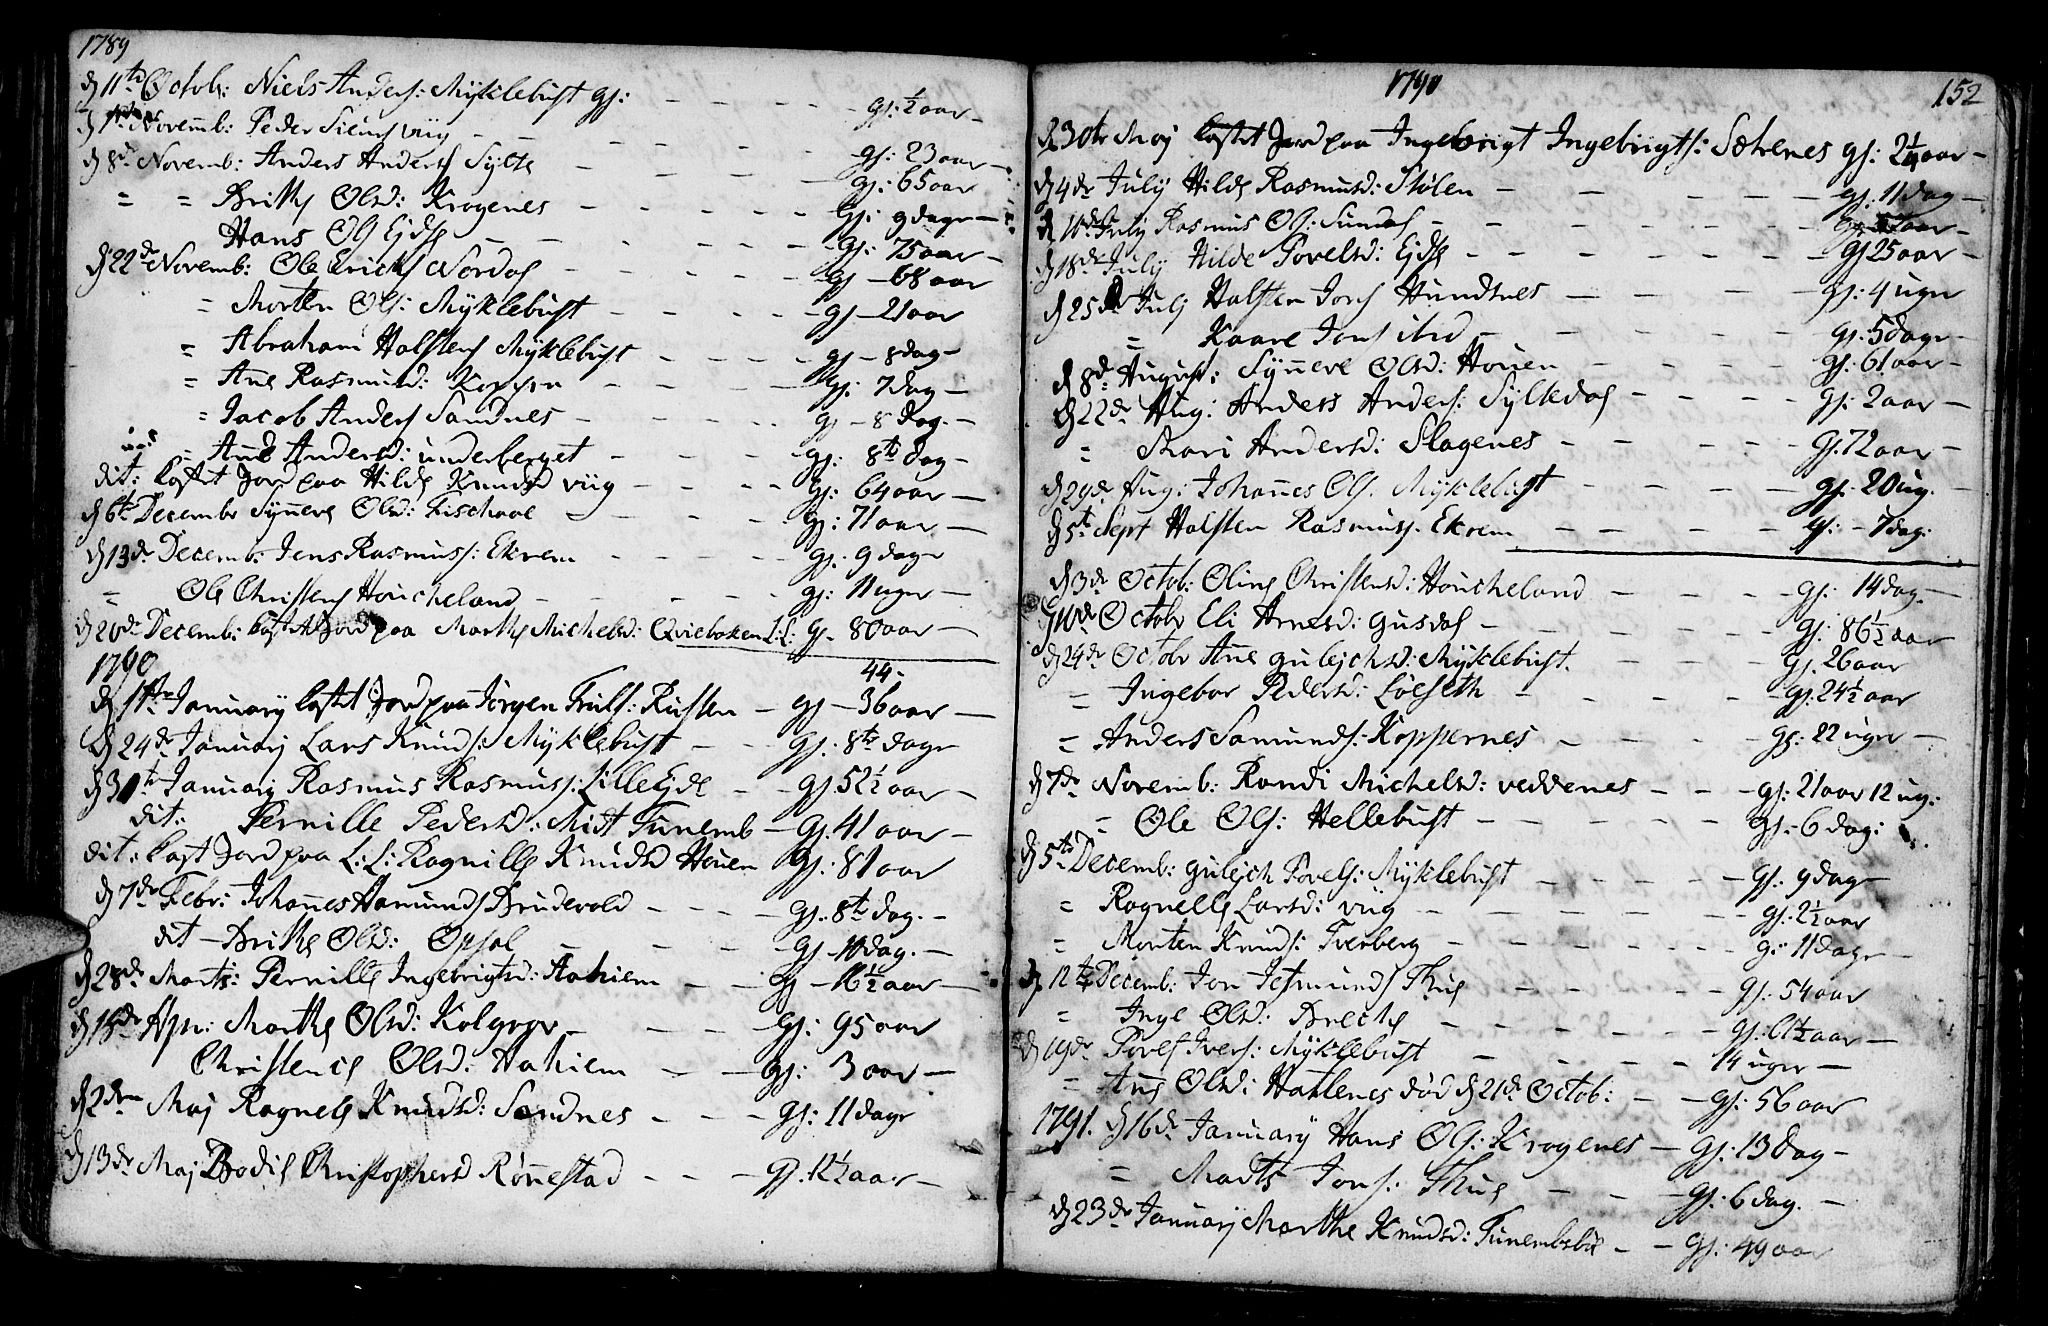 1789
d 11te Octob: Niels Anders: Mÿklebust gs: — — — — gs: ½ aar —
d 1te Novemb: Peder Siurs viig — — — gs: 23 aar —
d 8de Novemb: Anders Anders Sylte — — — gs: 65 aar
= = Brithe Olsd: Krogenes — — — gs: 9 dage —
Hans Ols Ejde — — — gs: 75 aar —
d 22de Novemb: Ole Ericks Nordal — — — gs — 68 aar
= Morten Ols: Mÿklebust — — — gs — 21 aar
= Abraham Halstens Mÿklebust — — — gs — 8 dag —
= Ane Rasmusd: Koppen — — — gs: 7 dag —
= Jacob Anders Sandnes — — — gs — 8 dag. —
= Ane Andersd: underberget — — — gs: 8te dag —
dit: kastet Jord paa Hilde Knudsd viig — — — gs: 64 aar —
d 6te Decembr Sÿnneve Olsd: Fischaae — — — gs: 71 aar —
d 13de Decemb: Jens Rasmuss: Ekrem — — — gs. 9 dage
= Ole Christens Houcheland — — — gs: 11 uger —
d 26de Decemb: kast Jord paa Marthe Michelsd: Qviebaken L:L: gs. 80 aar —
1790
44.
d 1te Januarÿ kastet Jord paa Jørgen Truls: Rusten — gs — 36 aar —
d 24de Januarj Lars Knuds: Mÿklebust — — gs. 8te dage
d 31te Januarj Rasmus Rasmuss: Lille Ejde — — gs 52 ½ aar —
dit: Pernille Pedersd: Midt Tunemb — gs. 41 aar —
dit: kast Jord paa L: L: Ragnille Knudsd Houen gs. 81 aar
d 7de Febr: Johannes Hamunds Brudevold — — — gs. 8te dag. —
dit — Brithe Olsd: Opsal — — — gs — 10 dag. —
d 28de Marti: Pernille Ingebrigtsd: Aahiem — — gs — 16 ½ aar —
d 18de Apr: Marthe Olsd: Kolgrov — — — gs: 95 aar
Christence Olsd: Aahiem — — gs: 3 aar —
d 2den Maj Ragnele Knudsd: Sandnes — — — gs: 11 dage
d 13de Maj Bodil Christophersd Rønnestad — — — gs. 12 ½ aar —
1790
152
d 30te Maj kastet Jord paa Ingebrigt Ingebrigts: Sætrenes gs: 2 ¼ aar —
d 4de Julÿ Hilde Rasmusd: Stølen — — — gs. 11 dag —
d 11te Julÿ Rasmus Ols: Sundal — — — aar —
d 18de Julÿ Hilde Povelsd: Ejde — — — gs 25 aar —
d 25de Julj Halsten Jons Hundsnes — — — gs: 4 uger
= Kaare Jons ibid — — — gs. 5 dage —
d 8de August: Sÿnneve Olsd: Houen — — — gs: 61 aar —
d 22de Aug: Anders Anders: Sÿltedal — — — gs: 2 aar —
= Mari Andersd: Slagenes — — — gs. 72 aar —
d 29de Aug: Johannes Ols. Mÿklebust — — — gs. 20 ug. —
d 5te Sept Halsten Rasmuss. Ekrem — — — gs: — 7 dag:
d 3de Octob: Oline Christensd: Houcheland — — — gs: 14 dag. —
d 10de Octobr Eli Arnesd: Gusdal — — — gs: 86 ½ aar
d 24de Octobr Ane Gulejchsd: Mÿklebust. — — — gs. 26 aar
= Ingebor Pedersd: Løeseth — — — gs: 24 ½ aar
= Anders Samunds: Koppernes — — — gs: 22 uger —
d 7de Novemb: Randi Michelsd: veddenes — — — gs: 21 aar 12 ug:
= Ole Ols: Hellebust — — — gs. 6 dag:
d 5te Decemb: Gulejch Povels: Mÿklebust — — — gs: 9 dag
= Ragnelle Larsd: viig — — — gs. 2 ½ aar
= Morten Knuds: Tverberg — — — gs: 11 dage —
d 12te Decemb: Jon Jetmunds Thue — — — gs: 54 aar
= Inge Olsd: Brecke — — — gs: 61 ½ aar —
d 19de Povel Ivers: Mÿklebust — — — 14 uger —
= Ane Olsd: Hatlenes død d 21de Octob: — — gs: 56 aar
1791. d 16de Januarÿ Hans Ols: Krogenes — gs: 13 dag —
= Madts Jons: Thue — — — gs. 6 dag. —
d 23de Januarÿ Marthe Knudsd: Tunembsbøe — — gs: 49 aar